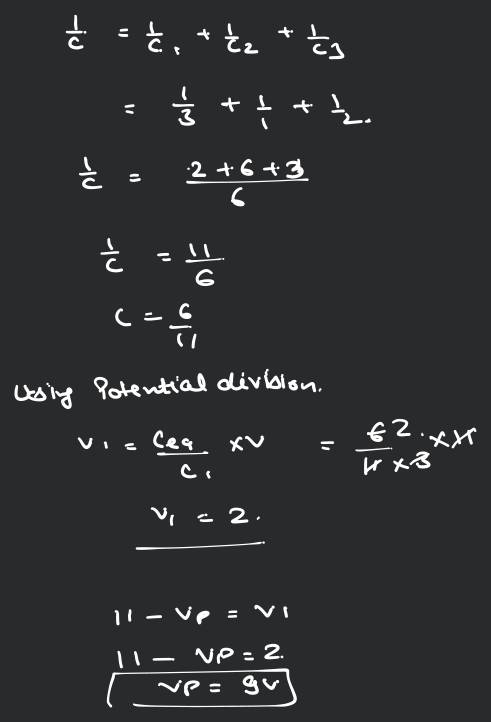 1/C = 1/C1 + 1/C2 + 1/C3
= 1/3 + 1/1 + 1/2.
1/C = 2+6+3/6
1/C = 11/6
C = 6/11
Using Potential division.
V1 = Ceq/C1 xV = 62/11x3 x11
V1 = 2.
11 - VP = V1
11 - VP = 2.
VP = 9V